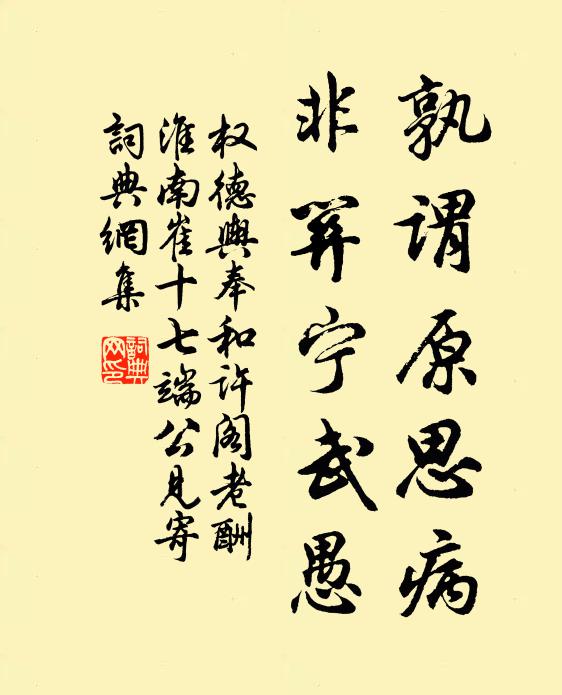 孰謂原思病
非關宁武愚
权德輿奉和许阁老酬
淮南崔十七端公见寄
詞典網集
詞典
网印